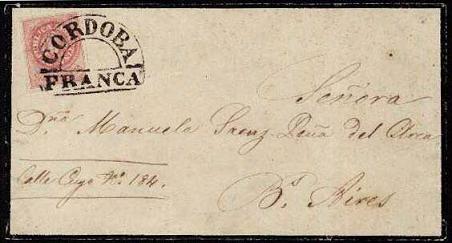 CORDOBA
FRANCA
Señora
Dña Manuela Saenz-Peña del Arca
Calle Cuyo No. 184.
Bs Aires